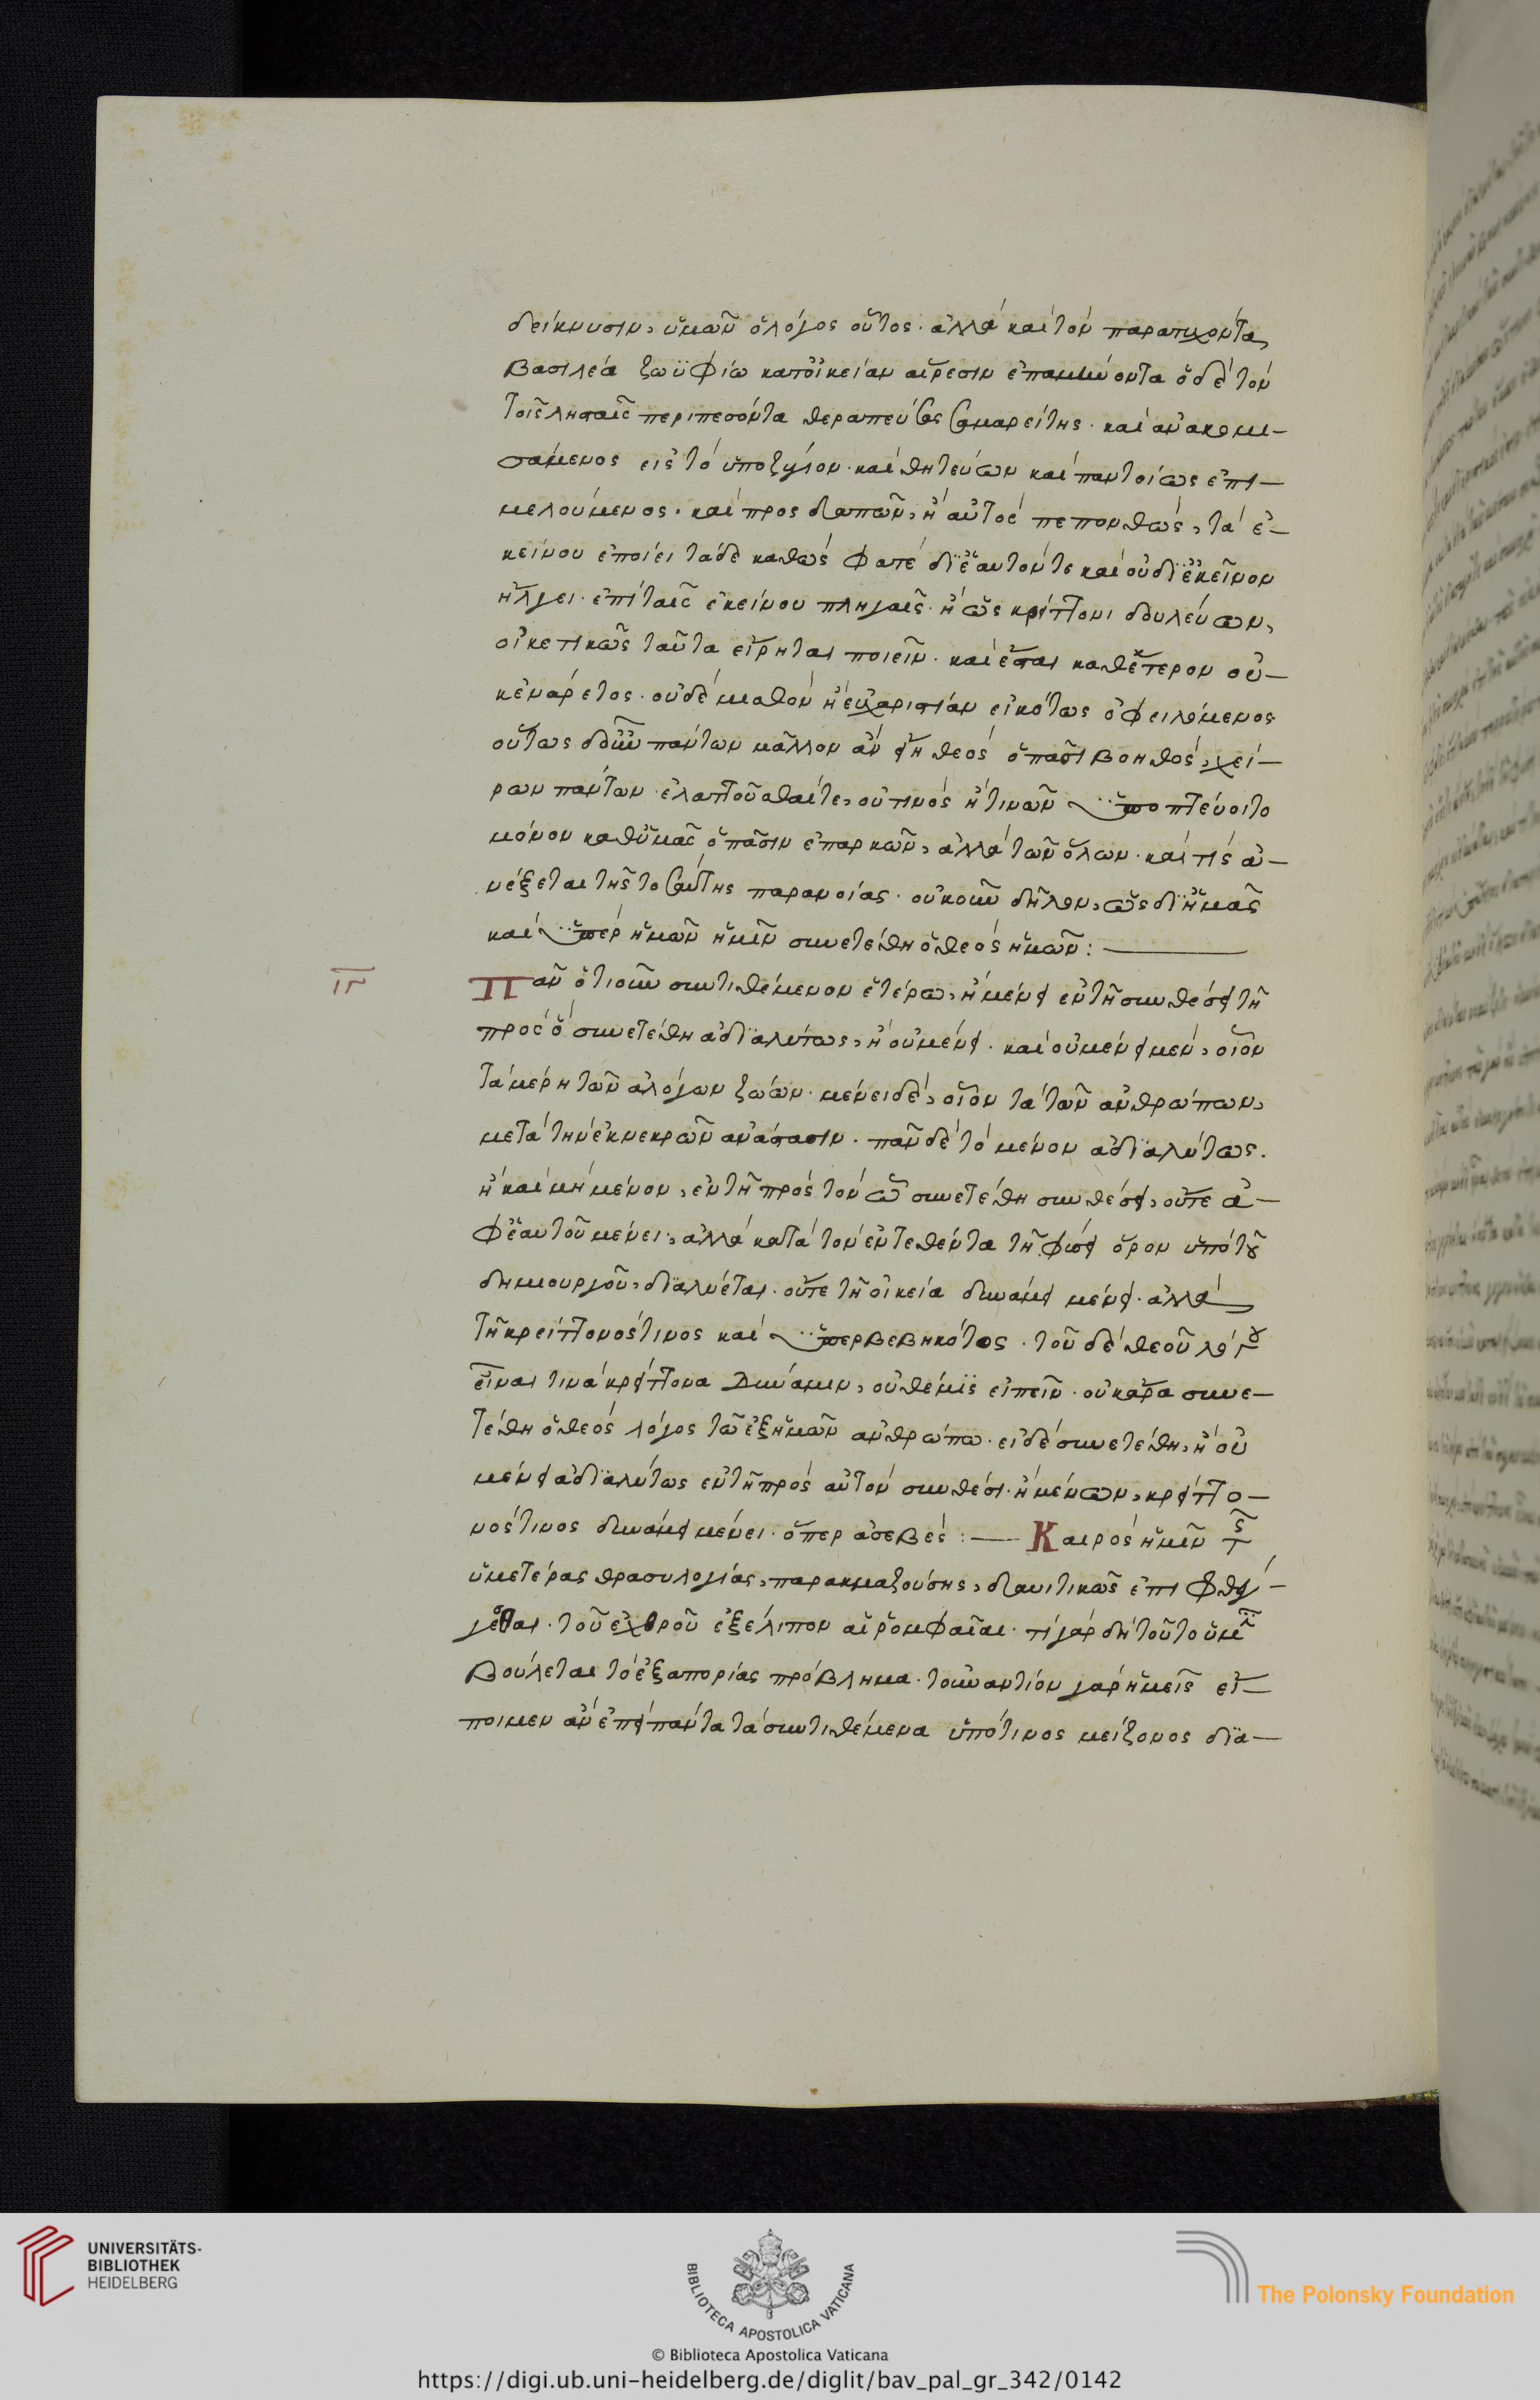 δείκνυσιν, ὑμῶν ὁ λόγος οὗτος· ἀλλὰ καὶ τὸν παρατυχόντα
βασιλέα ζωϋφίω κατοικείαν αἵρεσιν ἐπαμύνοντα ὁ δὲ τὸν
τοῖς λησταῖς περιπεσόντα θεραπεύσας σαμαρείτης· καὶ ἀνακομι–
σάμενος εἰς τὸ ὑποζύγιον· καὶ θητεύων καὶ παντοίως ἐπι–
μελούμενος· καὶ προς δαπῶν, ἢ αὐτὸς πεπονθὼς, τὰ ἐ–
κείνου ἐποίει τάδε καθὼς φατὲ δι' ἑαυτόν τε καὶ οὐ δι' ἐκεῖνον
ἤλγει· ἐπὶ ταῖς ἐκείνου πληγαῖς· ἢ ὡς κρείττονι δουλεύων,
οἰκετικῶς ταῦτα εἴρηται ποιεῖν· καὶ ἔσται καθ' ἕτερον οὐ–
κ ἐνάρετος· οὐδὲ μισθὸν ἢ εὐχαριστίαν εἰκότως ὀφειλόμενος
οὕτως οὖν πάντων μᾶλλον ἂν εἴη θεὸς ὁ πᾶσι βοηθὸς, χεί–
ρων πάντων ἐλαττοῦσθαί τε, οὔ τινος ἢ τινῶν ὑποπτεύοιτο
μόνον καθ' ὑμᾶς ὁ πᾶσιν ἐπαρκῶν, ἀλλὰ τῶν ὅλων· καὶ τίς ἀ–
νέξεται τῆς τοσαύτης παρανοίας· οὐκοῦν δῆλον, ὡς δι' ἡμᾶς
καὶ ὑπὲρ ἡμῶν ἡμῖν συνετέθη ὁ θεὸς ἡμῶν:
ιγ
Πᾶν ὁτιοῦν συντιθέμενον ἑτέρω, ἢ μένει ἐν τῇ συνθέσει τῇ
πρὸς ὃ συνετέθη ἀδιαλύτως, ἢ οὐ μένει· καὶ οὐ μένει μὲν, οἷον
τὰ μέρη τῶν ἀλόγων ζώων· μένει δὲ, οἷον τὰ τῶν ἀνθρώπων,
μετὰ τὴν ἐκ νεκρῶν ἀνάστασιν· πᾶν δὲ τὸ μένον ἀδιαλύτως.
ἢ καὶ μὴ μένον, ἐν τῇ πρὸς τὸν ᾧ συνετέθη συνθέσει, οὔτε ἀ–
φ' ἑαυτοῦ μένει, ἀλλὰ κατὰ τὸν ἐντεθέντα τῇ φύσει ὅρον ὑπὸ τοῦ
δημιουργοῦ, διαλύεται· οὔτε τῇ οἰκεία δυνάμει μένει· ἀλλὰ
τῇ κρείττονός τινος καὶ ὑπερβεβηκότος· τοῦ δὲ θεοῦ λόγου
εἶναί τινα κρείττονα δύναμιν, οὐ θέμις εἰπεῖν· οὐκ ἄρα συνε–
τέθη ὁ θεὸς λόγος τῶ ἐξ ἡμῶν ἀνθρώπω· εἰ δὲ συνετέθη, ἢ οὐ
μένει ἀδιαλύτως ἐν τῇ πρὸς αὐτὸν συνθέσει· ἢ μένων, κρείττο–
νός τινος δυνάμει μένει· ὅπερ ἀσεβές:— Καιρὸς ἡμῖν τῆς
ὑμετέρας θρασυλογίας, παρακμαζούσης, δαυιτικῶς ἐπιφθέγ–
γεσθαι· τοῦ ἐχθροῦ ἐξέλιπον αἱ ῥομφαῖαι· τί γὰρ δὴ τοῦτο ὑμῖν
βούλεται τὸ ἐξ ἀπορίας πρόβλημα· τοὐναντίον γὰρ ἡμεῖς εἴ–
ποιμεν ἂν ἐπεὶ πάντα τὰ συντιθέμενα ὑπό τινος μείζονος δια–
UNIVERSITÄTS-
BIBLIOTHEK
HEIDELBERG
BIBLIOTECA APOSTOLICA VATICANA
The Polonsky Foundation
© Biblioteca Apostolica Vaticana
https://digi.ub.uni-heidelberg.de/diglit/bav_pal_gr_342/0142